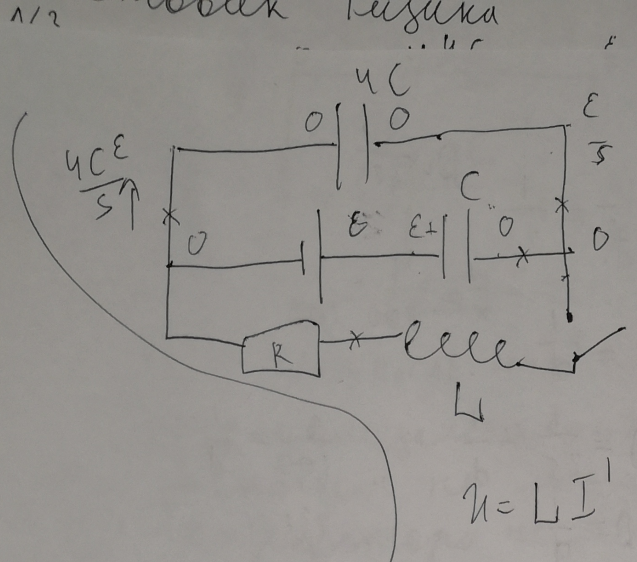 1/2 Физика
4C
0 0 ε/5
4Cε/5
0 ε ε+ C 0 0
R
L
U = LI'